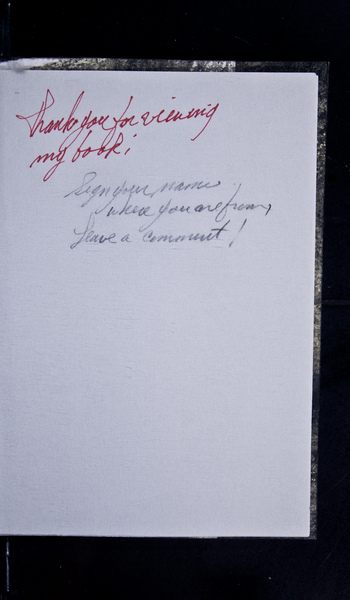 Thank you for viewing
my book!
Sign your name
where you are from,
Leave a comment!